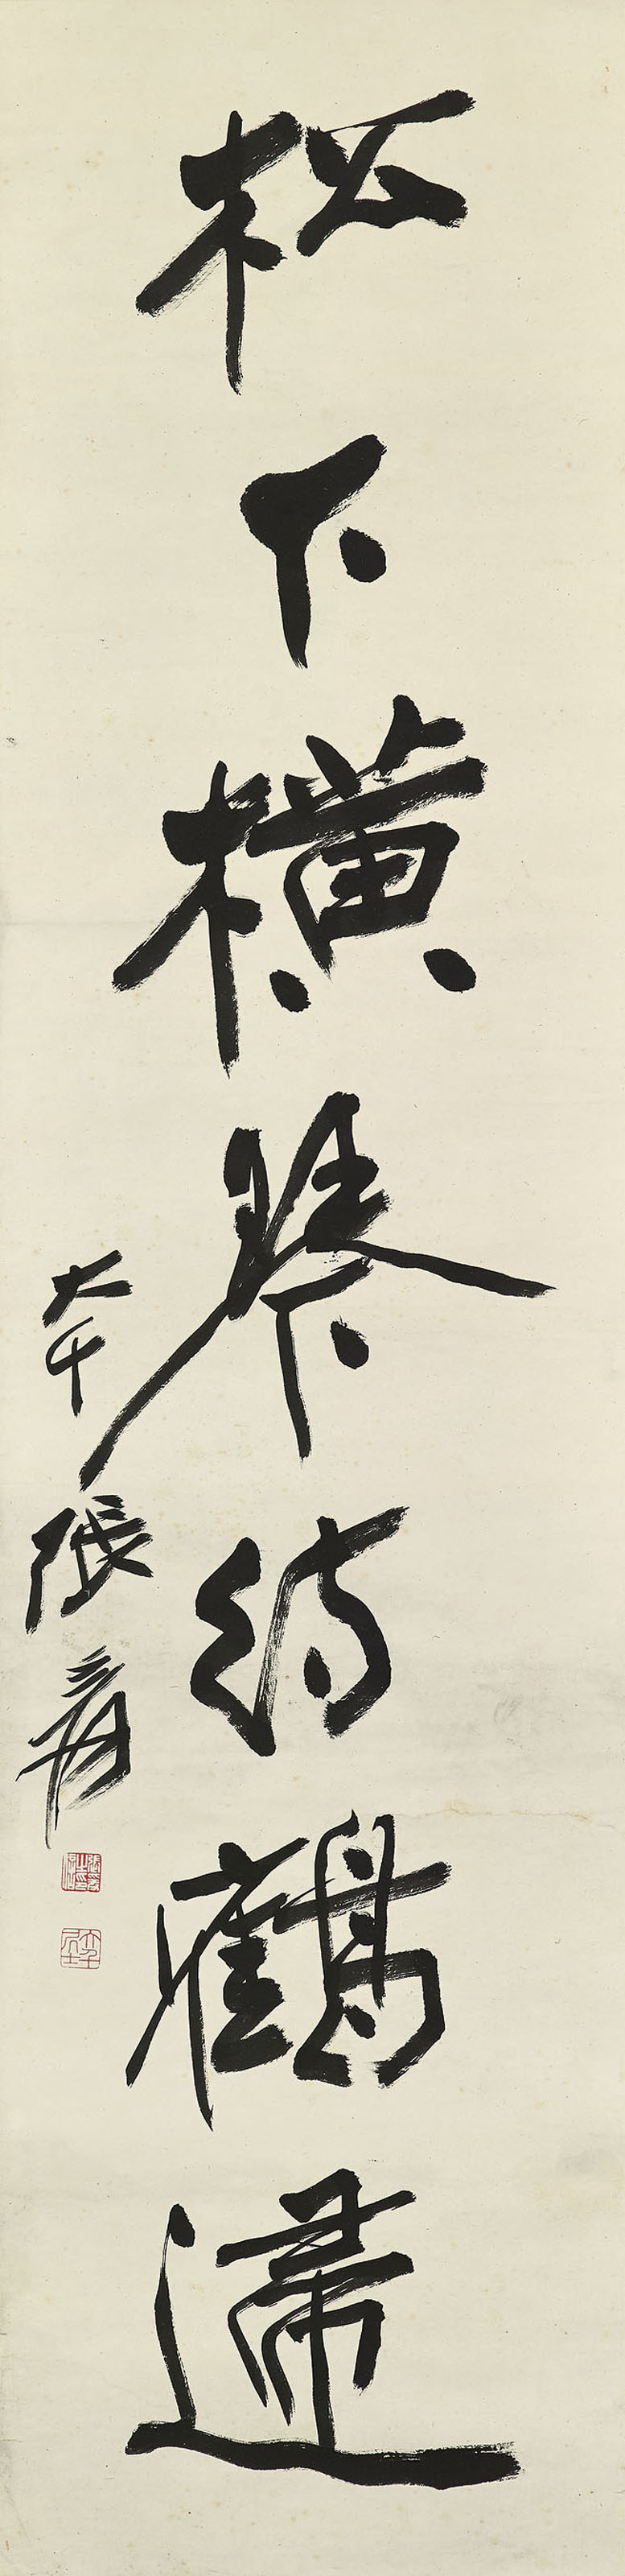 松下橫琴待鶴歸
大千張爰